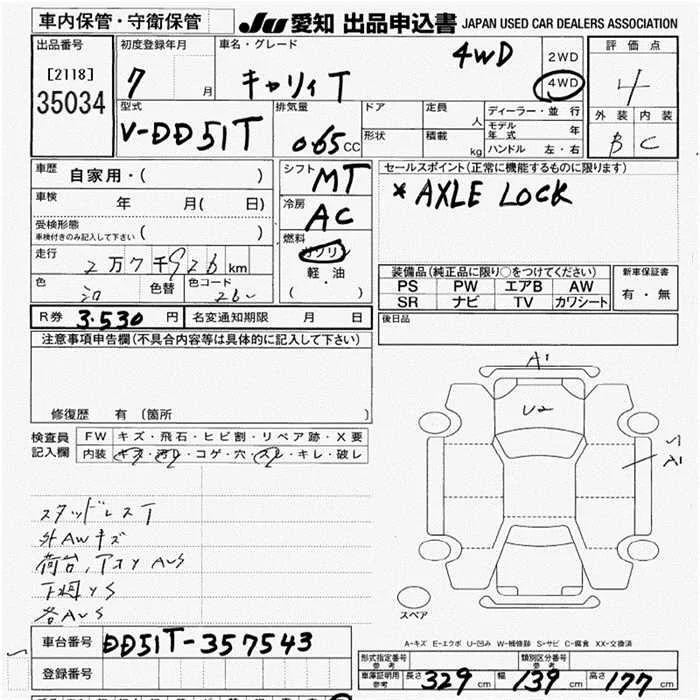 車内保管・守衛保管
JU 愛知 出品申込書 JAPAN USED CAR DEALERS ASSOCIATION
出品番号
[2118]
35034
初度登録年月
7 月
車名・グレード
キャリィT 4WD
2WD
4WD
評価点
4
外装 内装
B C
型式
V-DD51T
排気量
065 CC
ドア
定員 人
形状
積載 kg
ディーラー・並行
モデル年式 年
ハンドル 左・右
車歴
自家用・( )
車検 年 月( 日)
受検形態
車検付きのみ記入して下さい ( )
走行
2万7千926 km
色
色替
色コード
26
シフト
MT
冷房
AC
燃料
ガソリン
軽油
( ・ )
セールスポイント(正常に機能するものに限ります)
* AXLE LOCK
装備品(純正品に限り○をつけてください)
PS PW エアB AW
SR ナビ TV カワシート
新車保証書
有・無
R券 3.530 円 名変通知期限 月 日
後日品
注意事項申告欄(不具合内容等は具体的に記入して下さい)
修復歴 有 〔箇所 〕
検査員記入欄
FW キズ・飛石・ヒビ割・リペア跡・X要
内装 キズ・汚レ・コゲ・穴・スレ・キレ・破レ
スタッドレスT
外AWキズ
荷台、アオリAUS
下廻りS
各AUS
A1
U2
A1
スペア
A-キズ E-エクボ U-凹み W-補修跡 S-サビ C-腐食 XX-交換済
車台番号 DD51T-357543
登録番号
形式指定番号 参考
類別区分番号 参考
車庫証明用 参考 長さ 329 cm 幅 139 cm 高さ 177 cm